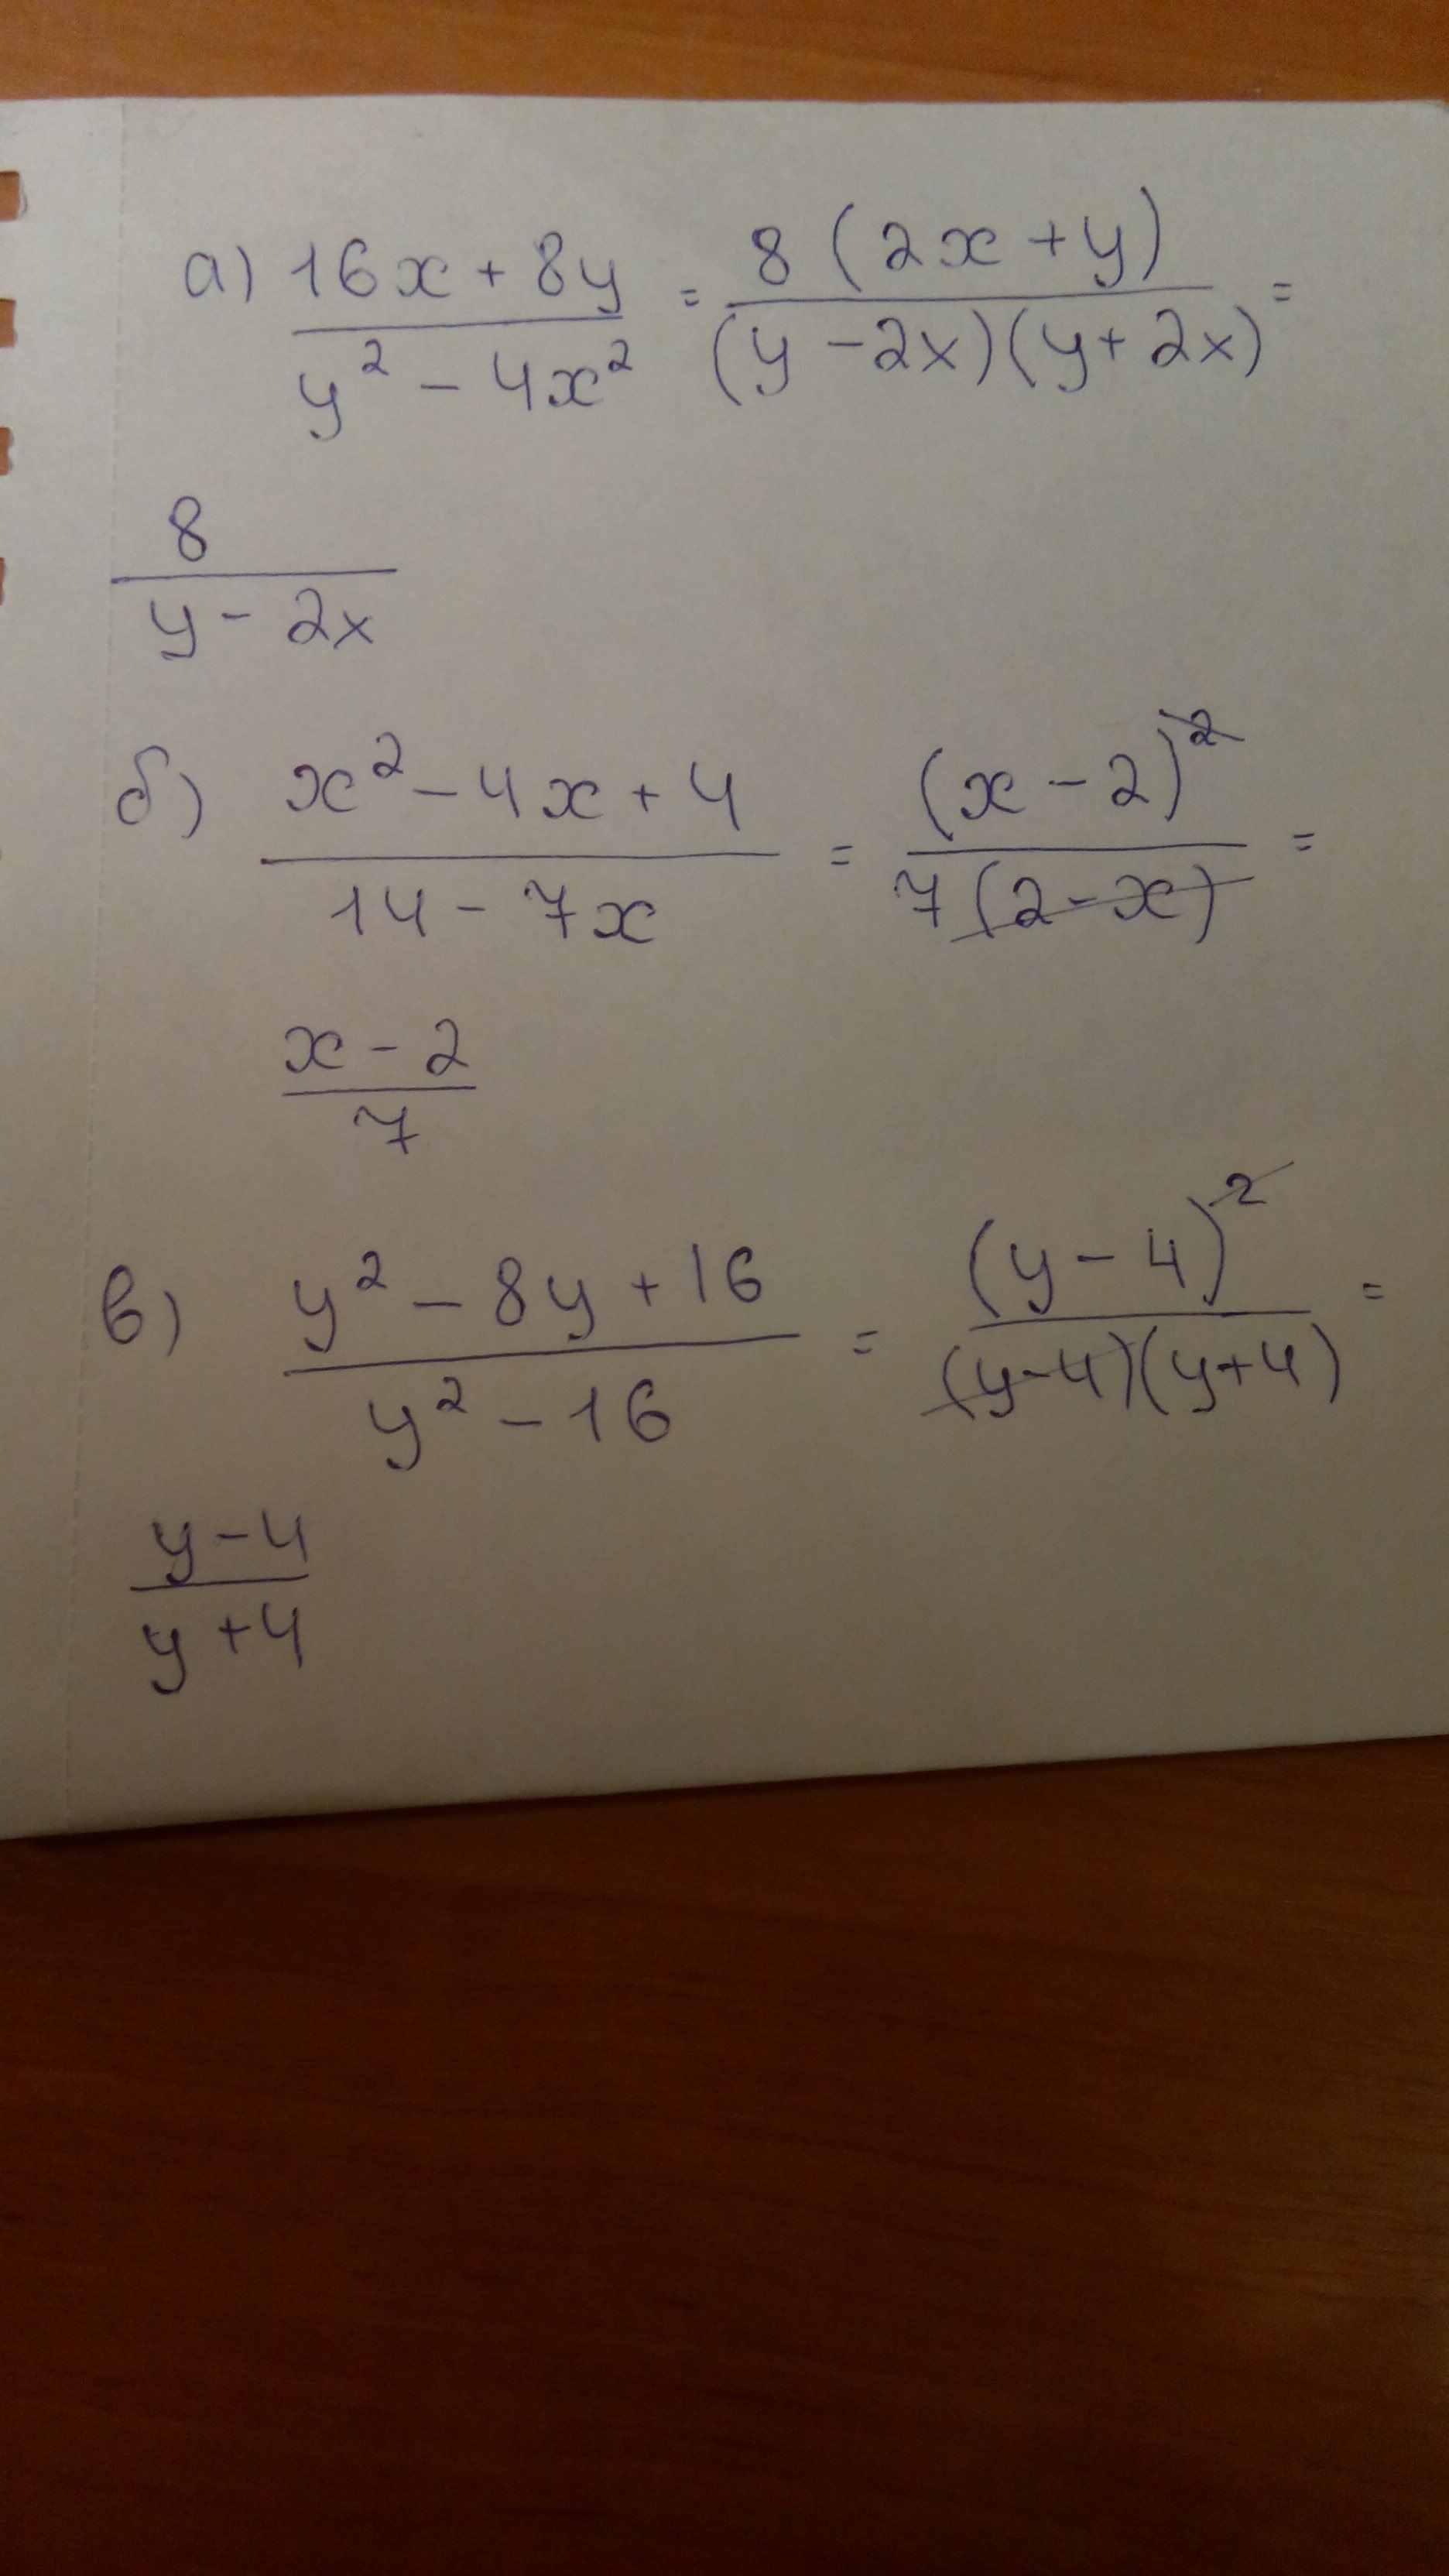 а) 16x + 8y / y² - 4x² = 8 (2x + y) / (y - 2x)(y + 2x) =
8 / y - 2x
б) x² - 4x + 4 / 14 - 7x = (x - 2)² / 7 (2 - x) =
x - 2 / 7
в) y² - 8y + 16 / y² - 16 = (y - 4)² / (y - 4)(y + 4) =
y - 4 / y + 4